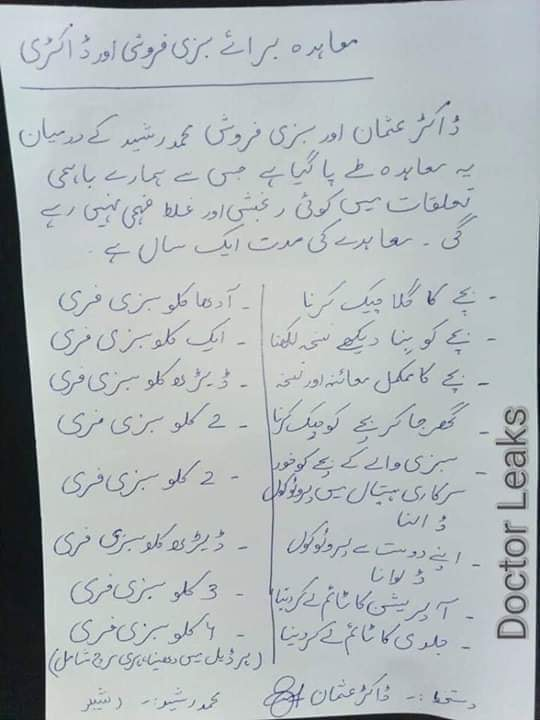 معاہدہ برائے سبزی فروشی اور ڈاکٹری
ڈاکٹر عثمان اور سبزی فروش محمد رشید کے درمیان
یہ معاہدہ طے پا گیا ہے جس سے ہمارے باہمی
تعلقات میں کوئی رنجش اور غلط فہمی نہیں رہے
گی ۔ معاہدے کی مدت ایک سال ہے
- بچے کا گلا چیک کرنا - آدھا کلو سبزی فری
- بچے کو بنا دیکھے نسخہ لکھنا - ایک کلو سبزی فری
- بچے کا مکمل معائنہ اور نسخہ - ڈیڑھ کلو سبزی فری
- گھر جا کر بچے کو چیک کرنا - 2 کلو سبزی فری
- سبزی والے کے بچے کو خود
سرکاری ہسپتال میں پروٹوکول - 2 کلو سبزی فری
ڈالنا
- اپنے دوست سے پروٹوکول - ڈیڑھ کلو سبزی فری
ڈلوانا
- آپریشن کا ٹائم لے کر دینا - 3 کلو سبزی فری
- جلدی کا ٹائم لے کر دینا - 4 کلو سبزی فری
(ہر ڈیل میں دھنیا ہری مرچ شامل)
دستخط :- ڈاکٹر عثمان محمد رشید :- رشید
Doctor Leaks